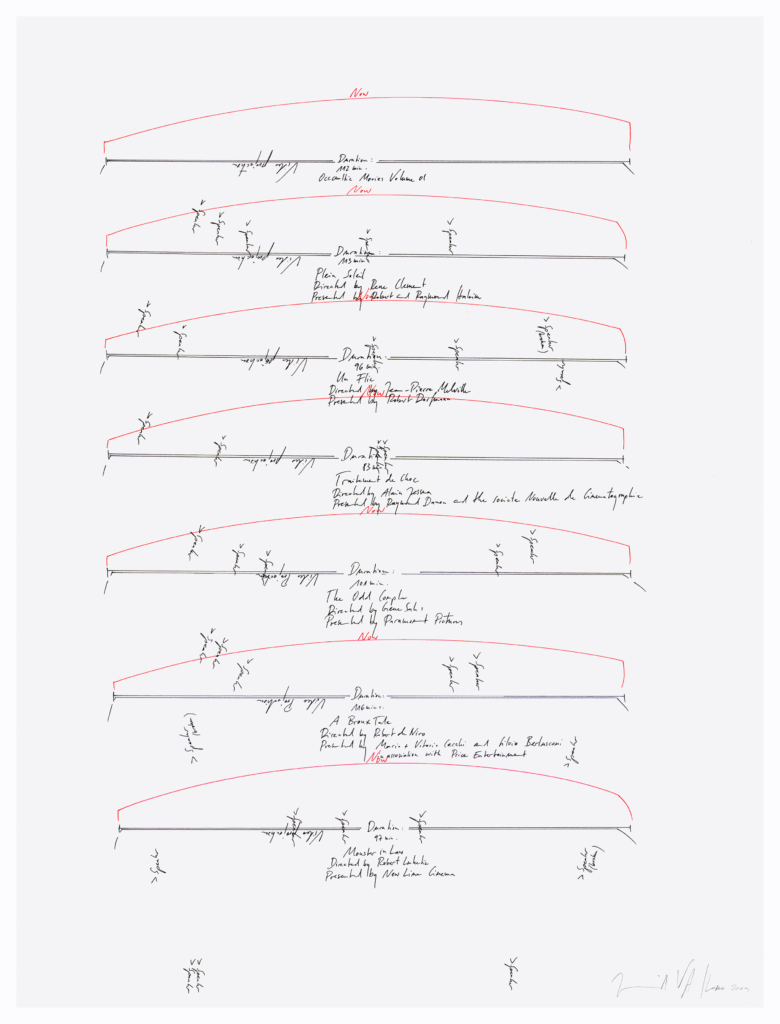 Now
Video projection
Duration:
112 min.
Oceanic Movies Volume 01
Now
> Speaker
> Speaker
> Speaker
> Speaker
> Speaker
Video projection
Duration:
113 mins
Plein Soleil
Directed by Rene Clement
Presented by Robert and Raymond Hakim
Now
> Speaker
> Speaker
> Speaker
> Speaker
> Speaker
> Speaker
Video projection
Duration:
96 min
Un Flic
Directed by Jean-Pierre Melville
Presented by Robert Dorfmann
Now
> Speaker
> Speaker
> Speaker
> Speaker
Video projection
Duration:
83 min
Traitement de Choc
Directed by Alain Jessua
Presented by Raymond Danon and the societe Nouvelle de Cinematographie
Now
> Speaker
> Speaker
> Speaker
> Speaker
> Speaker
Video Projection
Duration:
101 min.
The Odd Couple
Directed by Gene Saks
Presented by Paramount Pictures
Now
> Speaker
> Speaker
> Speaker
> Speaker
> Speaker
Video Projection
Duration:
116 mins.
A Bronx Tale
Directed by Robert de Niro
Presented by Mario + Vittorio Cecchi and Silvio Berlusconi
in association with Price Entertainment
> Speaker
> Speaker
Now
> Speaker
> Speaker
> Speaker
Video projection
Duration:
97 min.
Monster in Law
Directed by Robert Luketic
Presented by New Line Cinema
> Speaker
> Speaker
> Speaker
> Speaker
> Speaker